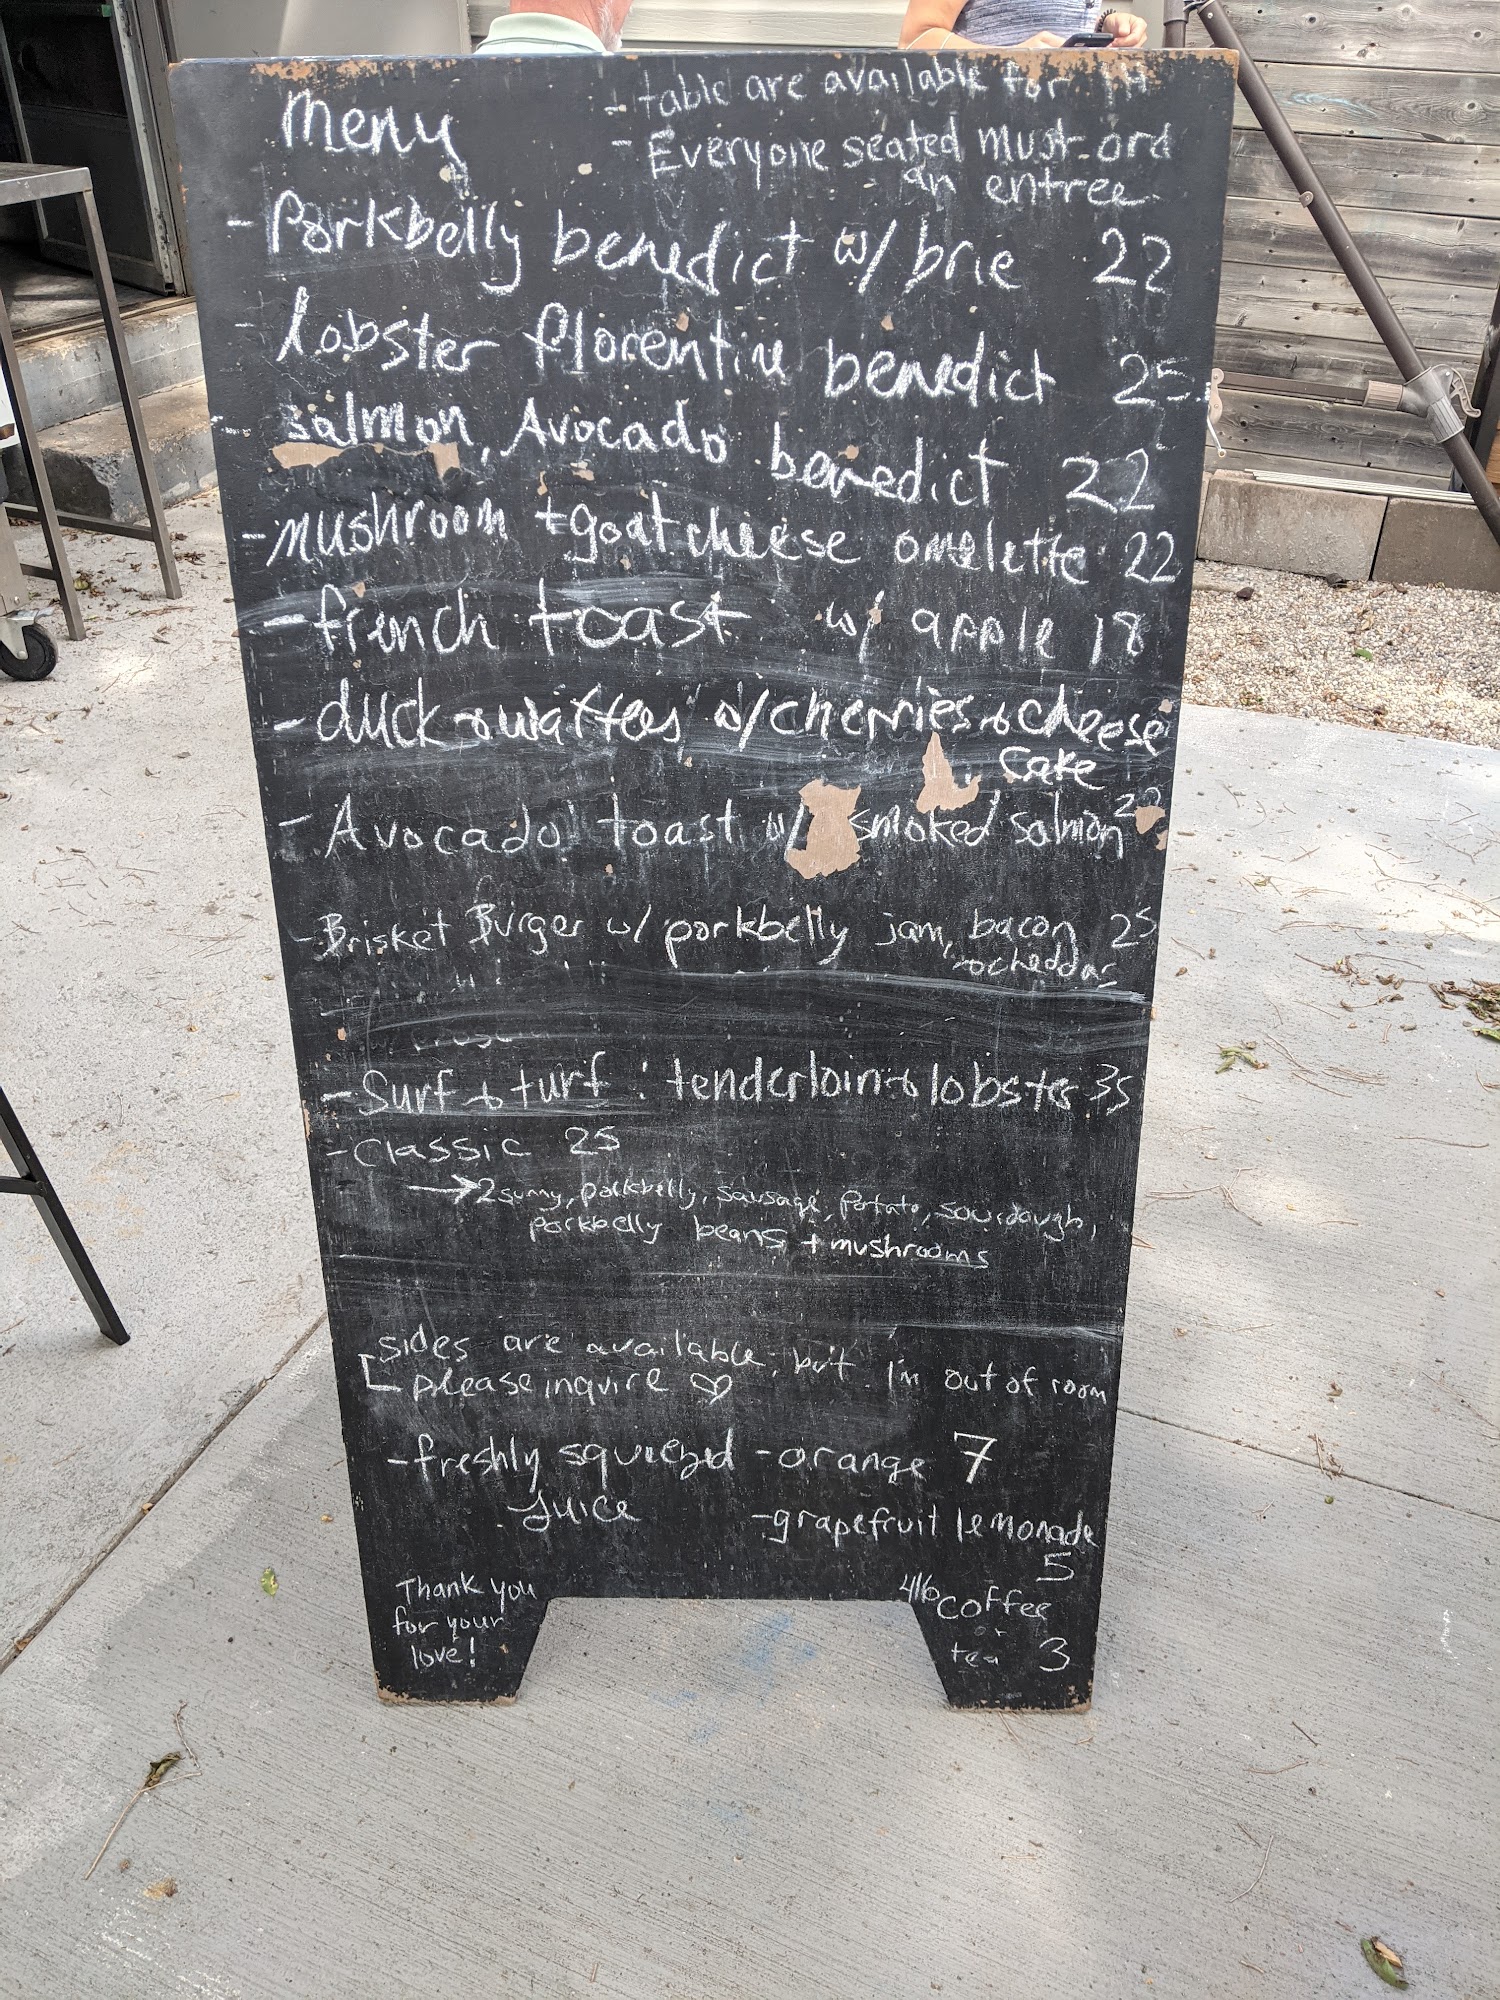 menu
- table are available for 1H
- Everyone seated must ord
an entree
- Porkbelly benedict w/ brie 22
- lobster florentine benedict 25
- salmon, Avocado benedict 22
- mushroom + goat cheese omelette 22
- french toast w/ apple 18
- duck + waffles w/ cherries + cheese
cake
- Avocado toast w/ smoked salmon 22
- Brisket Burger w/ porkbelly jam, bacon 25
+ cheddar
- Surf + turf : tenderloin + lobster 35
- Classic 25
→ 2 sunny, porkbelly, sausage, potato, sourdough,
porkbelly beans + mushrooms
sides are available, but I'm out of room
please inquire ♡
- freshly squeezed - orange 7
Juice
- grapefruit lemonade
5
Thank you
for your
love!
coffee
or
tea 3